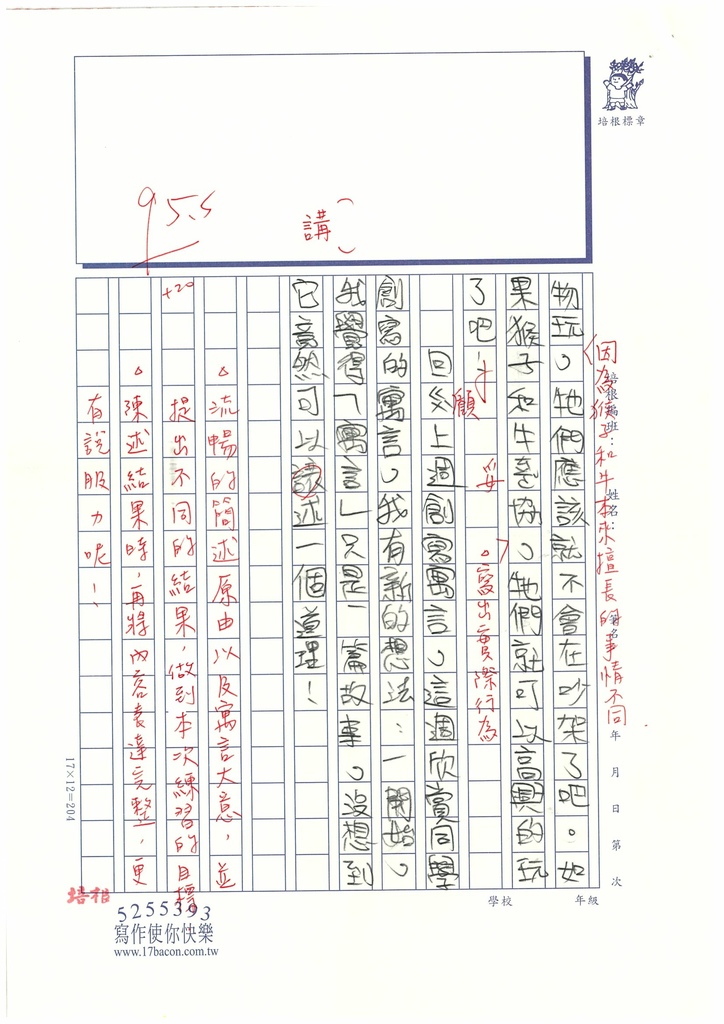 培根標章
95.5
講
+20
培根 班: 姓名: 筆名:
年 月 日 第 次
因為猴子和牛本來擅長的事情不同
物玩。牠們應該就不會在吵架了吧。如
果猴子和牛妥協。牠們就可以高興的玩
了吧!
妥
。寫出實際行為
顧
回 上週創寫寓言。這週欣賞同學
創寫的寓言。我有新的想法:一開始。
我覺得「寓言」只是一篇故事。沒想到
它竟然可以 述一個道理!
△流暢的簡述原由以及寓言大意,並
提出不同的結果,做到本次練習的目標。
△陳述結果時,再將內容表達完整,更
有說服力呢!
17×12=204
學校 年級
培根
5255393
寫作使你快樂
www.17bacon.com.tw